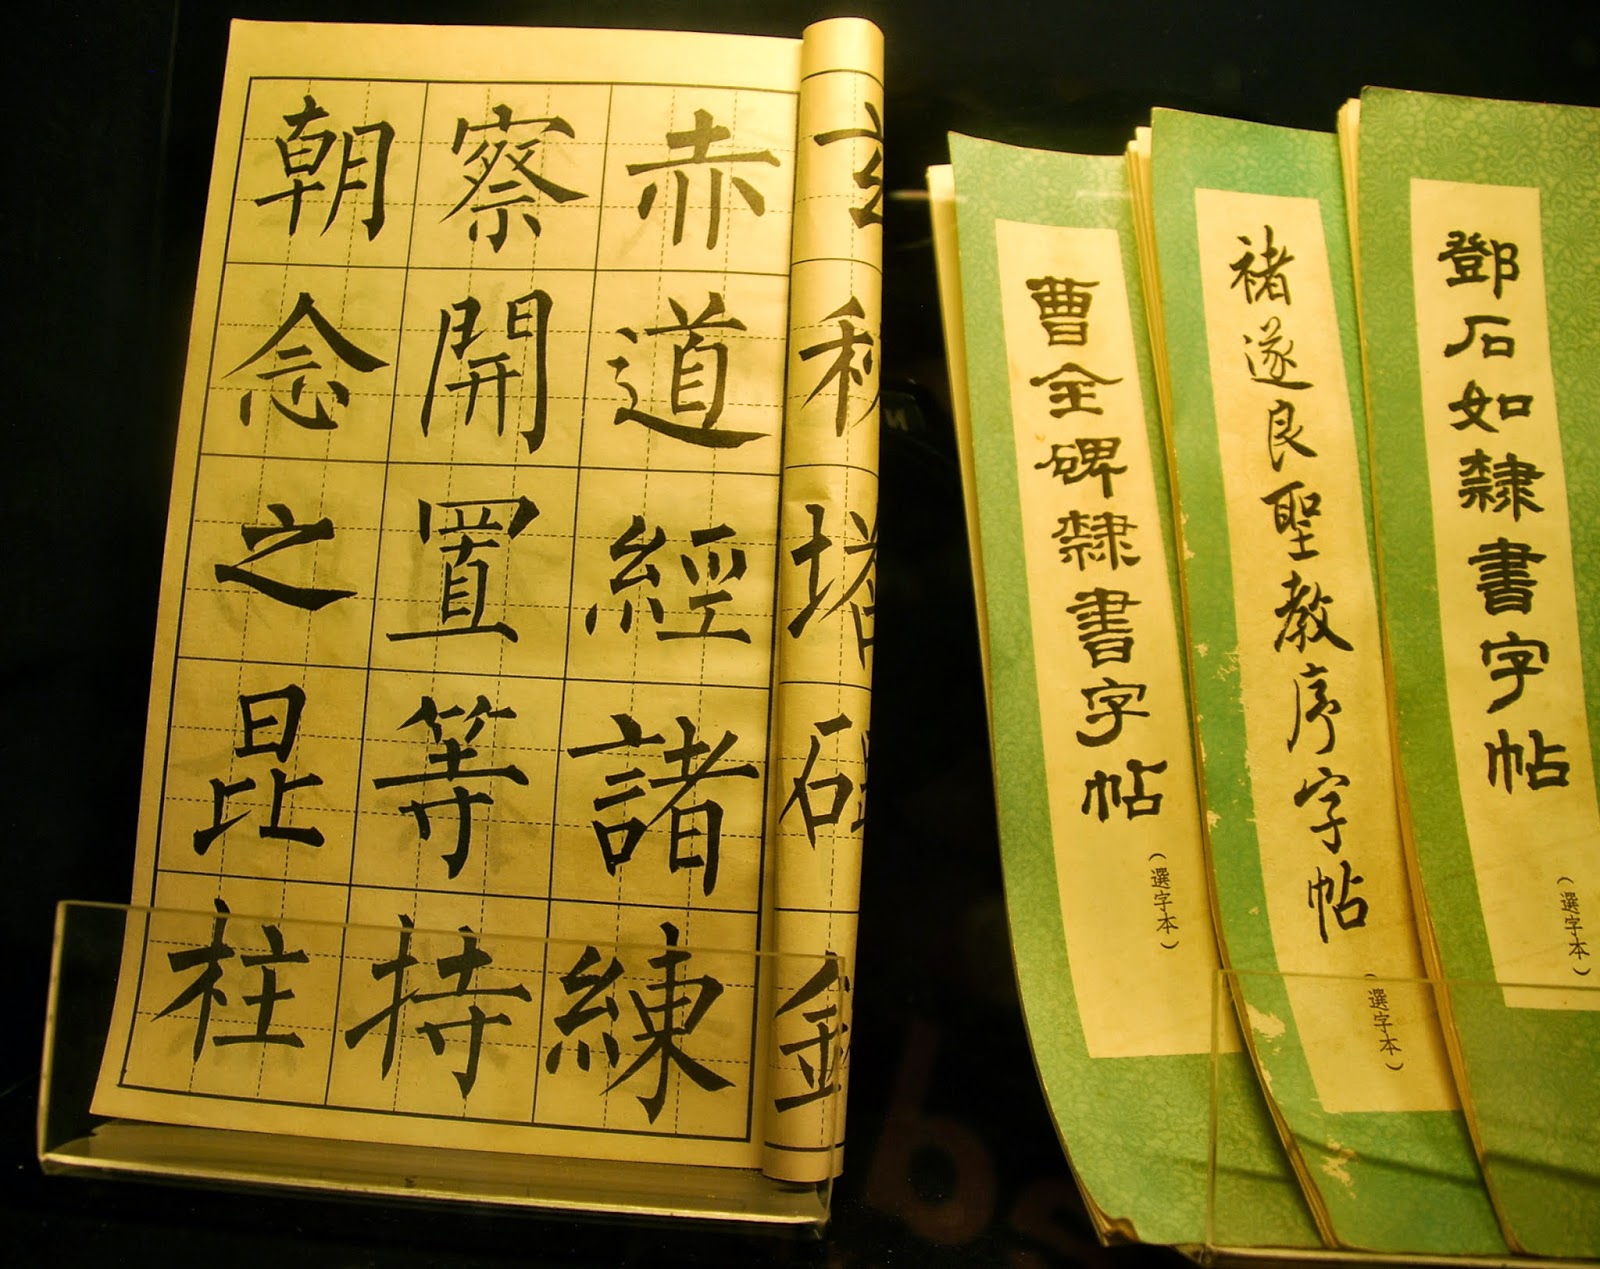 玄秘塔
赤道經諸練
察開置等持
朝念之昆柱
曹全碑隸書字帖
（選字本）
褚遂良聖教序字帖
（選字本）
鄧石如隸書字帖
（選字本）